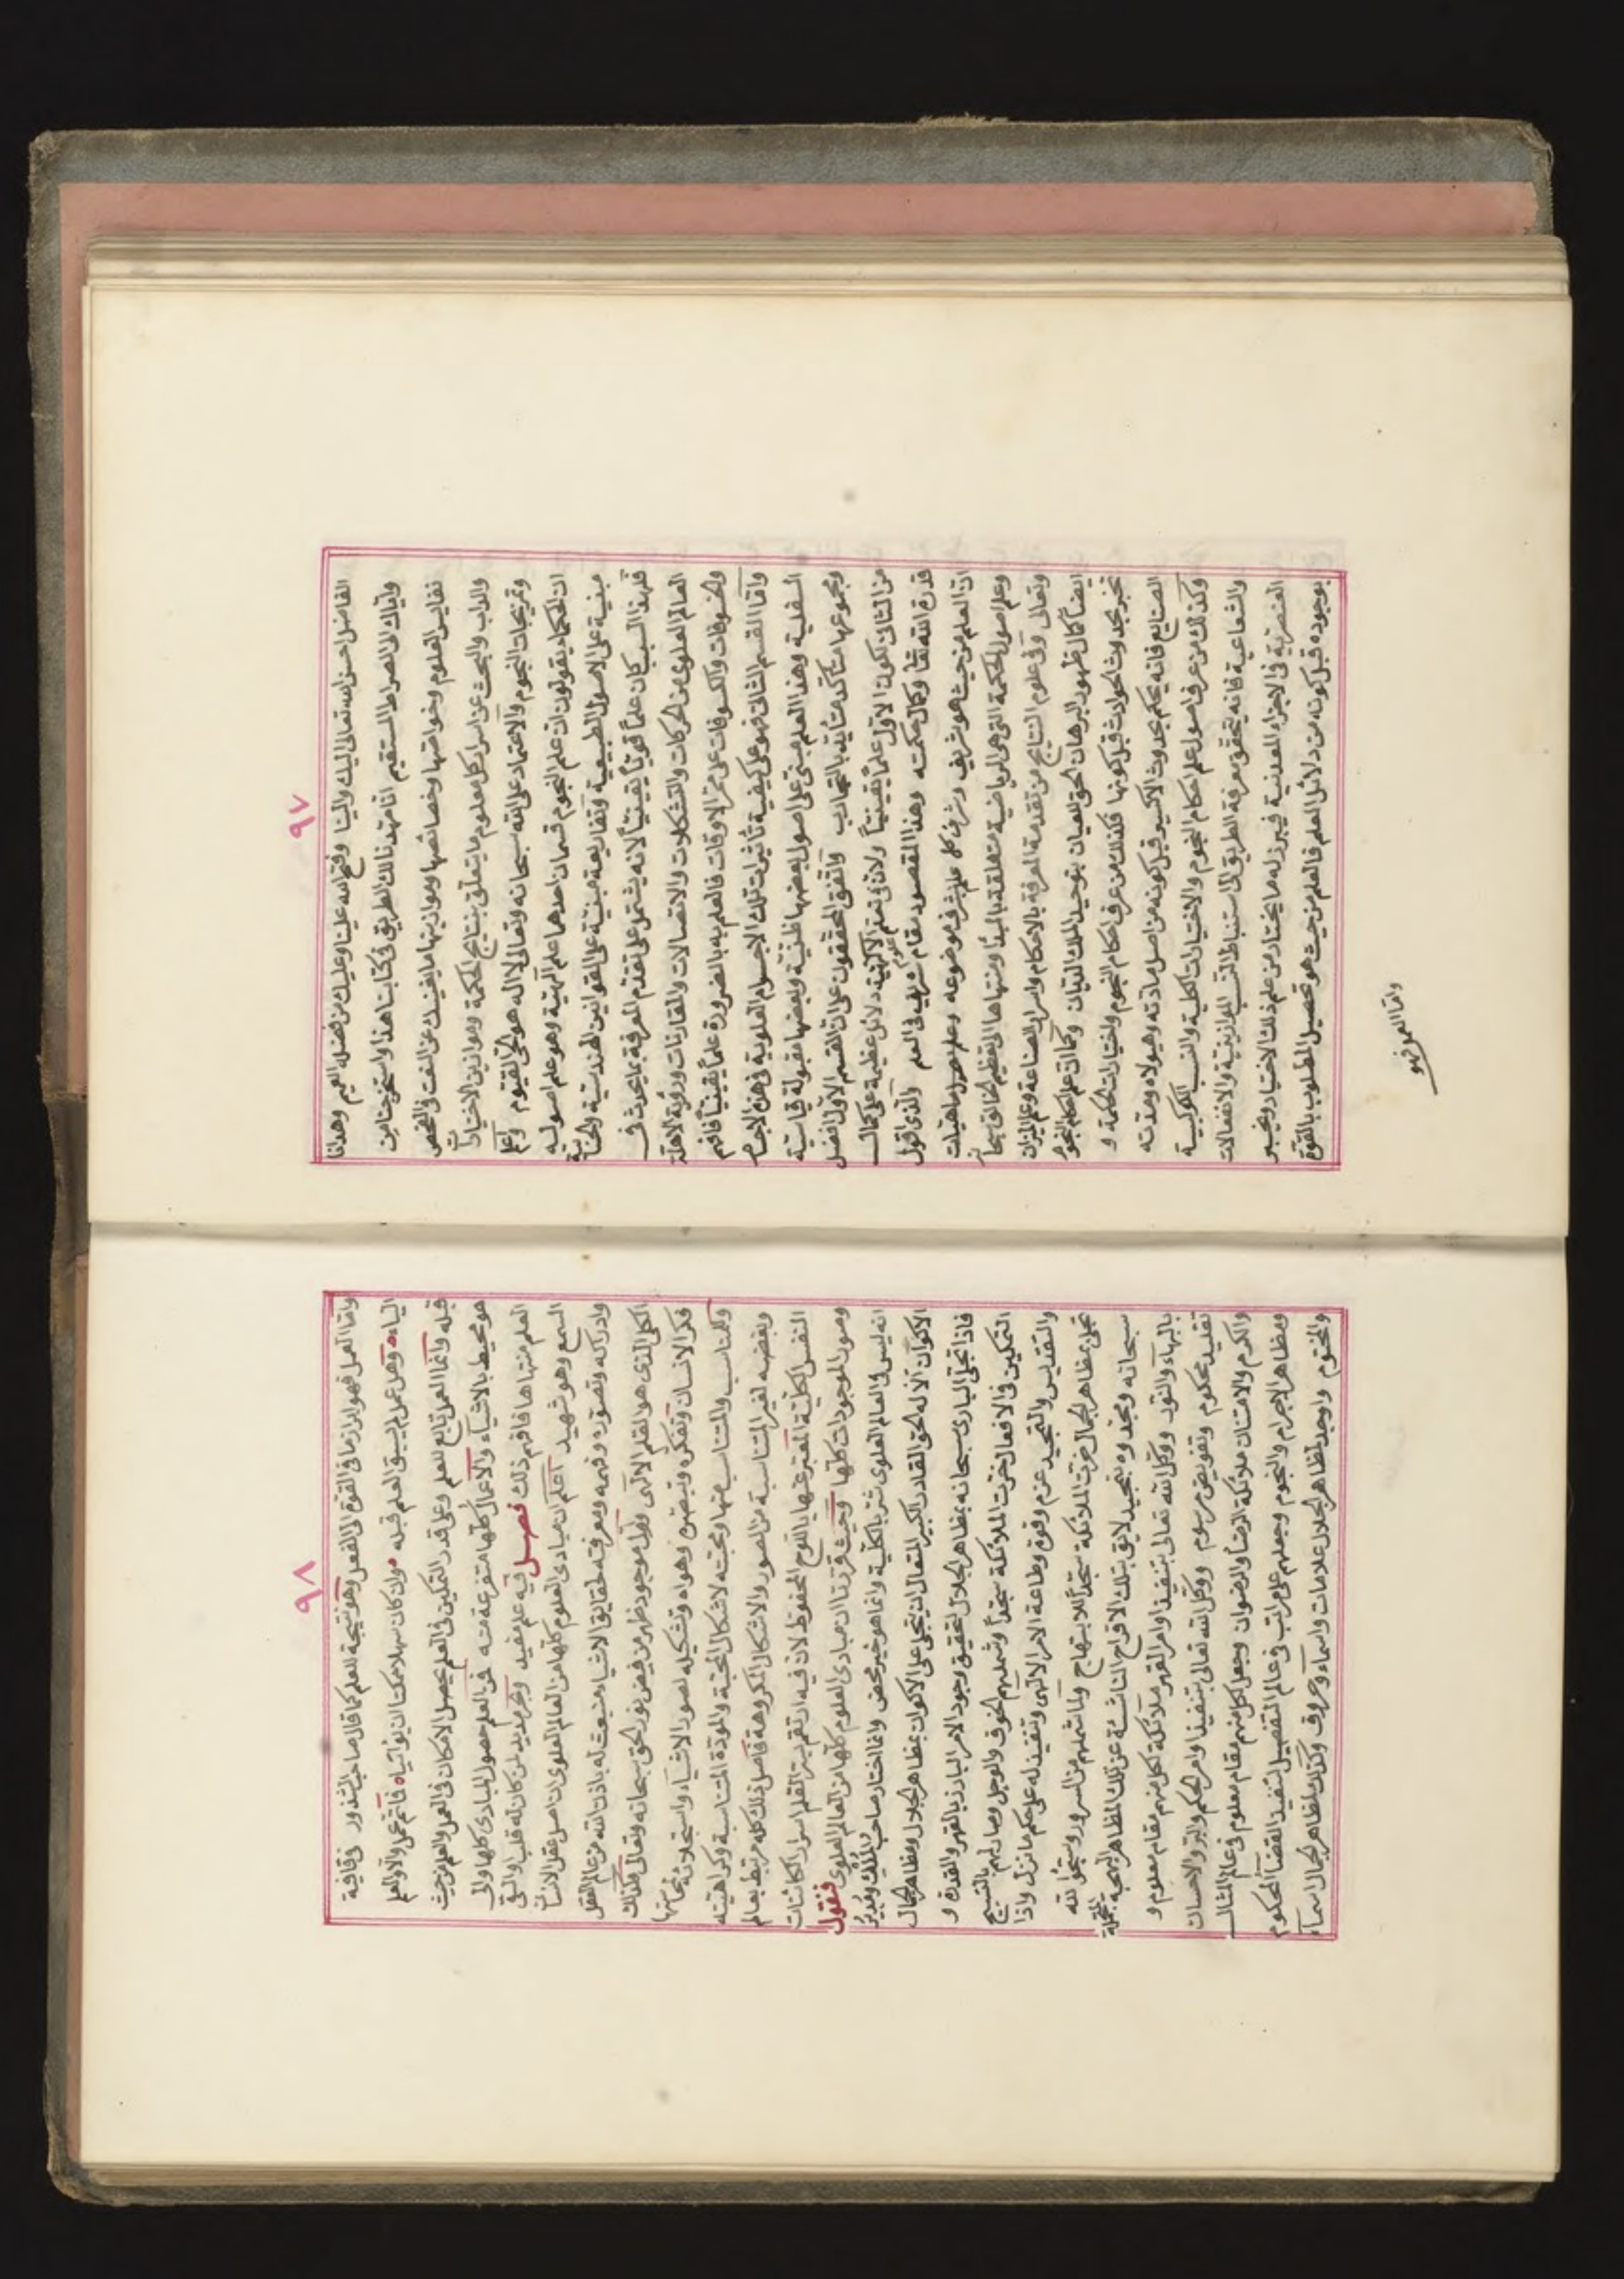 ٩٧
الفاضل احسن الله تعالى اليك والينا وفتح الله علينا وعليك من فضله العميم وهدانا
واياك الى الصراط المستقيم انا مهدنا لك الطريق في كتابنا هذا واستخرجنا من
نفايس العلوم وخواصها وخصائصها وموازينها ما يغنيك عن التفت في الفحص
والداب والبحث عن اسرار كل معلوم ما يتعلق بنتايج الحكمة وموازين الاختيارات
وتمزيجات النجوم والاعتماد على الله سبحانه وتعالى لا اله هو الحي القيوم واعلم
ان الحكماء يقولون ان علم النجوم قسمان احدهما علم الهيئة وهو علم اصوليه
مبنية على الاصول الطبيعية وتفاريعه مبنية على القوانين الهندسية والحسابية
فلهذا السبب كان علماً قوياً يقينياً لانه يشتمل على تقدم المعرفة بما يحدث في
العالم العلوي من الحركات والتشكلات والاتصالات والمقارنات ورؤية الاهلة
والخسوفات والكسوفات على ممر الاوقات فالعلم به بالضرورة علماً يقيناً فافهم
واما القسم الثاني فهو على كيفية تأثيرات تلك الاجسام العلوية في هذه الاجسام
السفلية وهذا العلم مبني على اصول بعضها ظنية وبعضها مقبولة قياسية
ومجموعها متأكد متأيد بالتجارب واتفق المحققون على ان القسم الاول افضل
من الثاني لكون الاول علماً يقينياً ولان في علوم الهيئة دلائل عظيمة على كمال
قدرة الله تعالى وكمال حكمته وهذا المقصود مقام شريف في العلم والذي اقول
ان العلم من حيث هو شريف وشرف كل علم بشرف موضوعه وعلم ماهيات
وعلم اصول الحكمة التي هي الرياضية متعلقة بالمبدا ومنتهاها الى تعظيم الخالق سبحانه
وتعالى وفي علوم النتايج من تقدمة المعرفة بالاحكام واسرار الصناعة وعلم الميزان
ايضاً كمال ظهور البرهان الحق للعيان بتوحيد الملك الديان وكما ان علم احكام النجوم
تخبر بحدوث الحوادث قبل كونها فكذلك من عرف احكام النجوم واختيارات الحكمة و
الصنايع فانه يحكم بحدوث الاكسير قبل كونه من اصل مادته وهيولاه ومدته
وكذلك من عرف اصول علم احكام النجوم والاختيارات الكلية والنسب الكوكبية
والشعاعية فانه يتحقق بمعرفة الطريق الى استنباط النسب الموازينية والانفعالات
العنصرية في الاجزاء المعدنية فيبرز له ما يختار من علم ذلك الاختيار ويخبر
بوجوده قبل كونه من دلائل العلم فالعلم من حيث هو تحصيل المطلوب بالقوة
واما العمل فهو
٩٨
واما العمل فهو ابراز ما في القوة الى الفعل وهو نتيجة للعلم كما قال صاحب الشذور في قافية
الياء وهل عمل لم يسبق العلم قبله وان كان سهلا ممكنا ان يؤاتيا فاثم عمل والا والعلم
قبله وانما العمل تابع للعلم وعلى قدر التمكين في العلم يحصل الامكان في العمل والعلم من حيث
هو محيط بالاشياء والاعمال كلها متفرعة منه فمن العلم حصول المبادي كلها والى
العلم منتهاها فافهم ذلك فصل فيه علم مفيد وبحر مديد لمن كان له قلب او القى
السمع وهو شهيد اعلم ان مبادي العلوم كلها من العالم العلوي ان اصل عقل الانسان
وادراكه وتصوره وفهمه ومعرفته لحقايق الاشياء منبعث له باذن الله من عالم العقل
الكلي الذي هو القلم الالهي واول موجود ظهر من فيض نور الحق سبحانه وتعالى وكذلك
فكر الانسان وتفكره وتبصره وهواه وتشكيله لصور الاشياء واستجلائه لمحاسنها
وللمناسب والمتناسب منها ومحبته لاشكال المحبة والمودة المتناسبة وكراهيته
وبغضه لغير المتناسبة من الصور والاشكال المكروهة فاصل ذلك كله مرتبط بعالم
النفس الكلية المعبر عنها باللوح المحفوظ لان فيه ارتقم بترالقلم اسرار الكائنات
وصور الموجودات كلها وحيث قررنا ان مبادي العلوم كلها من العالم العلوي فنقول
انه ليس في العالم العلوي شر بالكلية وانما هو خير محض وانما اختار صاحب الملك ومدبر
الاكوان الاله الحق القادر الكبير المتعال ان يتجلى على الاكوان بمظاهر الجلال ومظاهر الجمال
فاذا تجلى الباري سبحانه بمظاهر الجلال لتحقيق وجود الامر البارز بالقهر والقدرة و
التمكين في الافعال خرت الملائكة سجداً وشملهم الخوف والوجل وصار لهم بالتسبيح
والتقديس والتمجيد عزم وقوة وطاعة الامر الالهي وتنفيذ له على حكم ما نزل واذا
تجلى بمظاهر الجمال خرت الملائكة سجداً للابتهاج ولما شملهم من السرور وسبحوا الله
سبحانه ومجدوه بتمجيد لايق بتلك الافراح الناشئة عن تلك المظاهر البهجة المتجلية
بالبهاء والنور ووكل الله تعالى بتنفيذ اوامر القهر ملائكة لكل منهم مقام معلوم و
تقليد محكوم وتفويض مرسوم ووكل الله تعالى بتنفيذ اوامر الحكم والبر والاحسان
والكرم والامتنان ملائكة الرضا والرضوان وجعل لكل منهم مقام معلوم في عالم المثال
ومظاهر الاجرام والنجوم وجعلهم على مراتب في عالم التفصيل لتنفيذ القضاء المحكوم
والمختوم واوجد لمظاهر الجلال علامات واسماء وحروف وكذلك لمظاهر الجمال اسماء